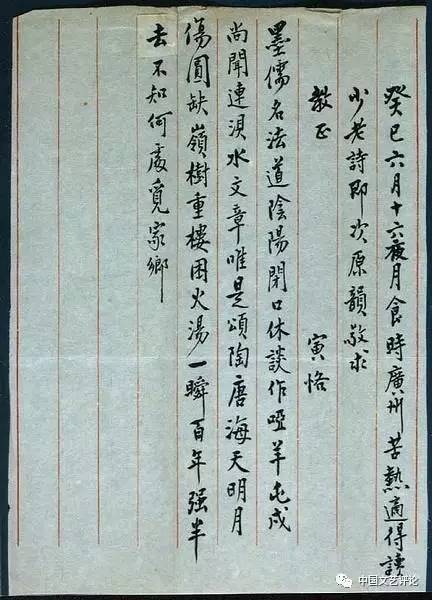 癸巳六月十六夜月食時廣州苦熱適得讀
少老詩即次原韻敬求
教正 寅恪
墨儒名法道陰陽閉口休談作啞羊屯戍
尚聞連浿水文章唯是頌陶唐海天明月
傷圓缺嶺樹重樓困火湯一瞬百年强半
去不知何處覓家鄉
中国文艺评论